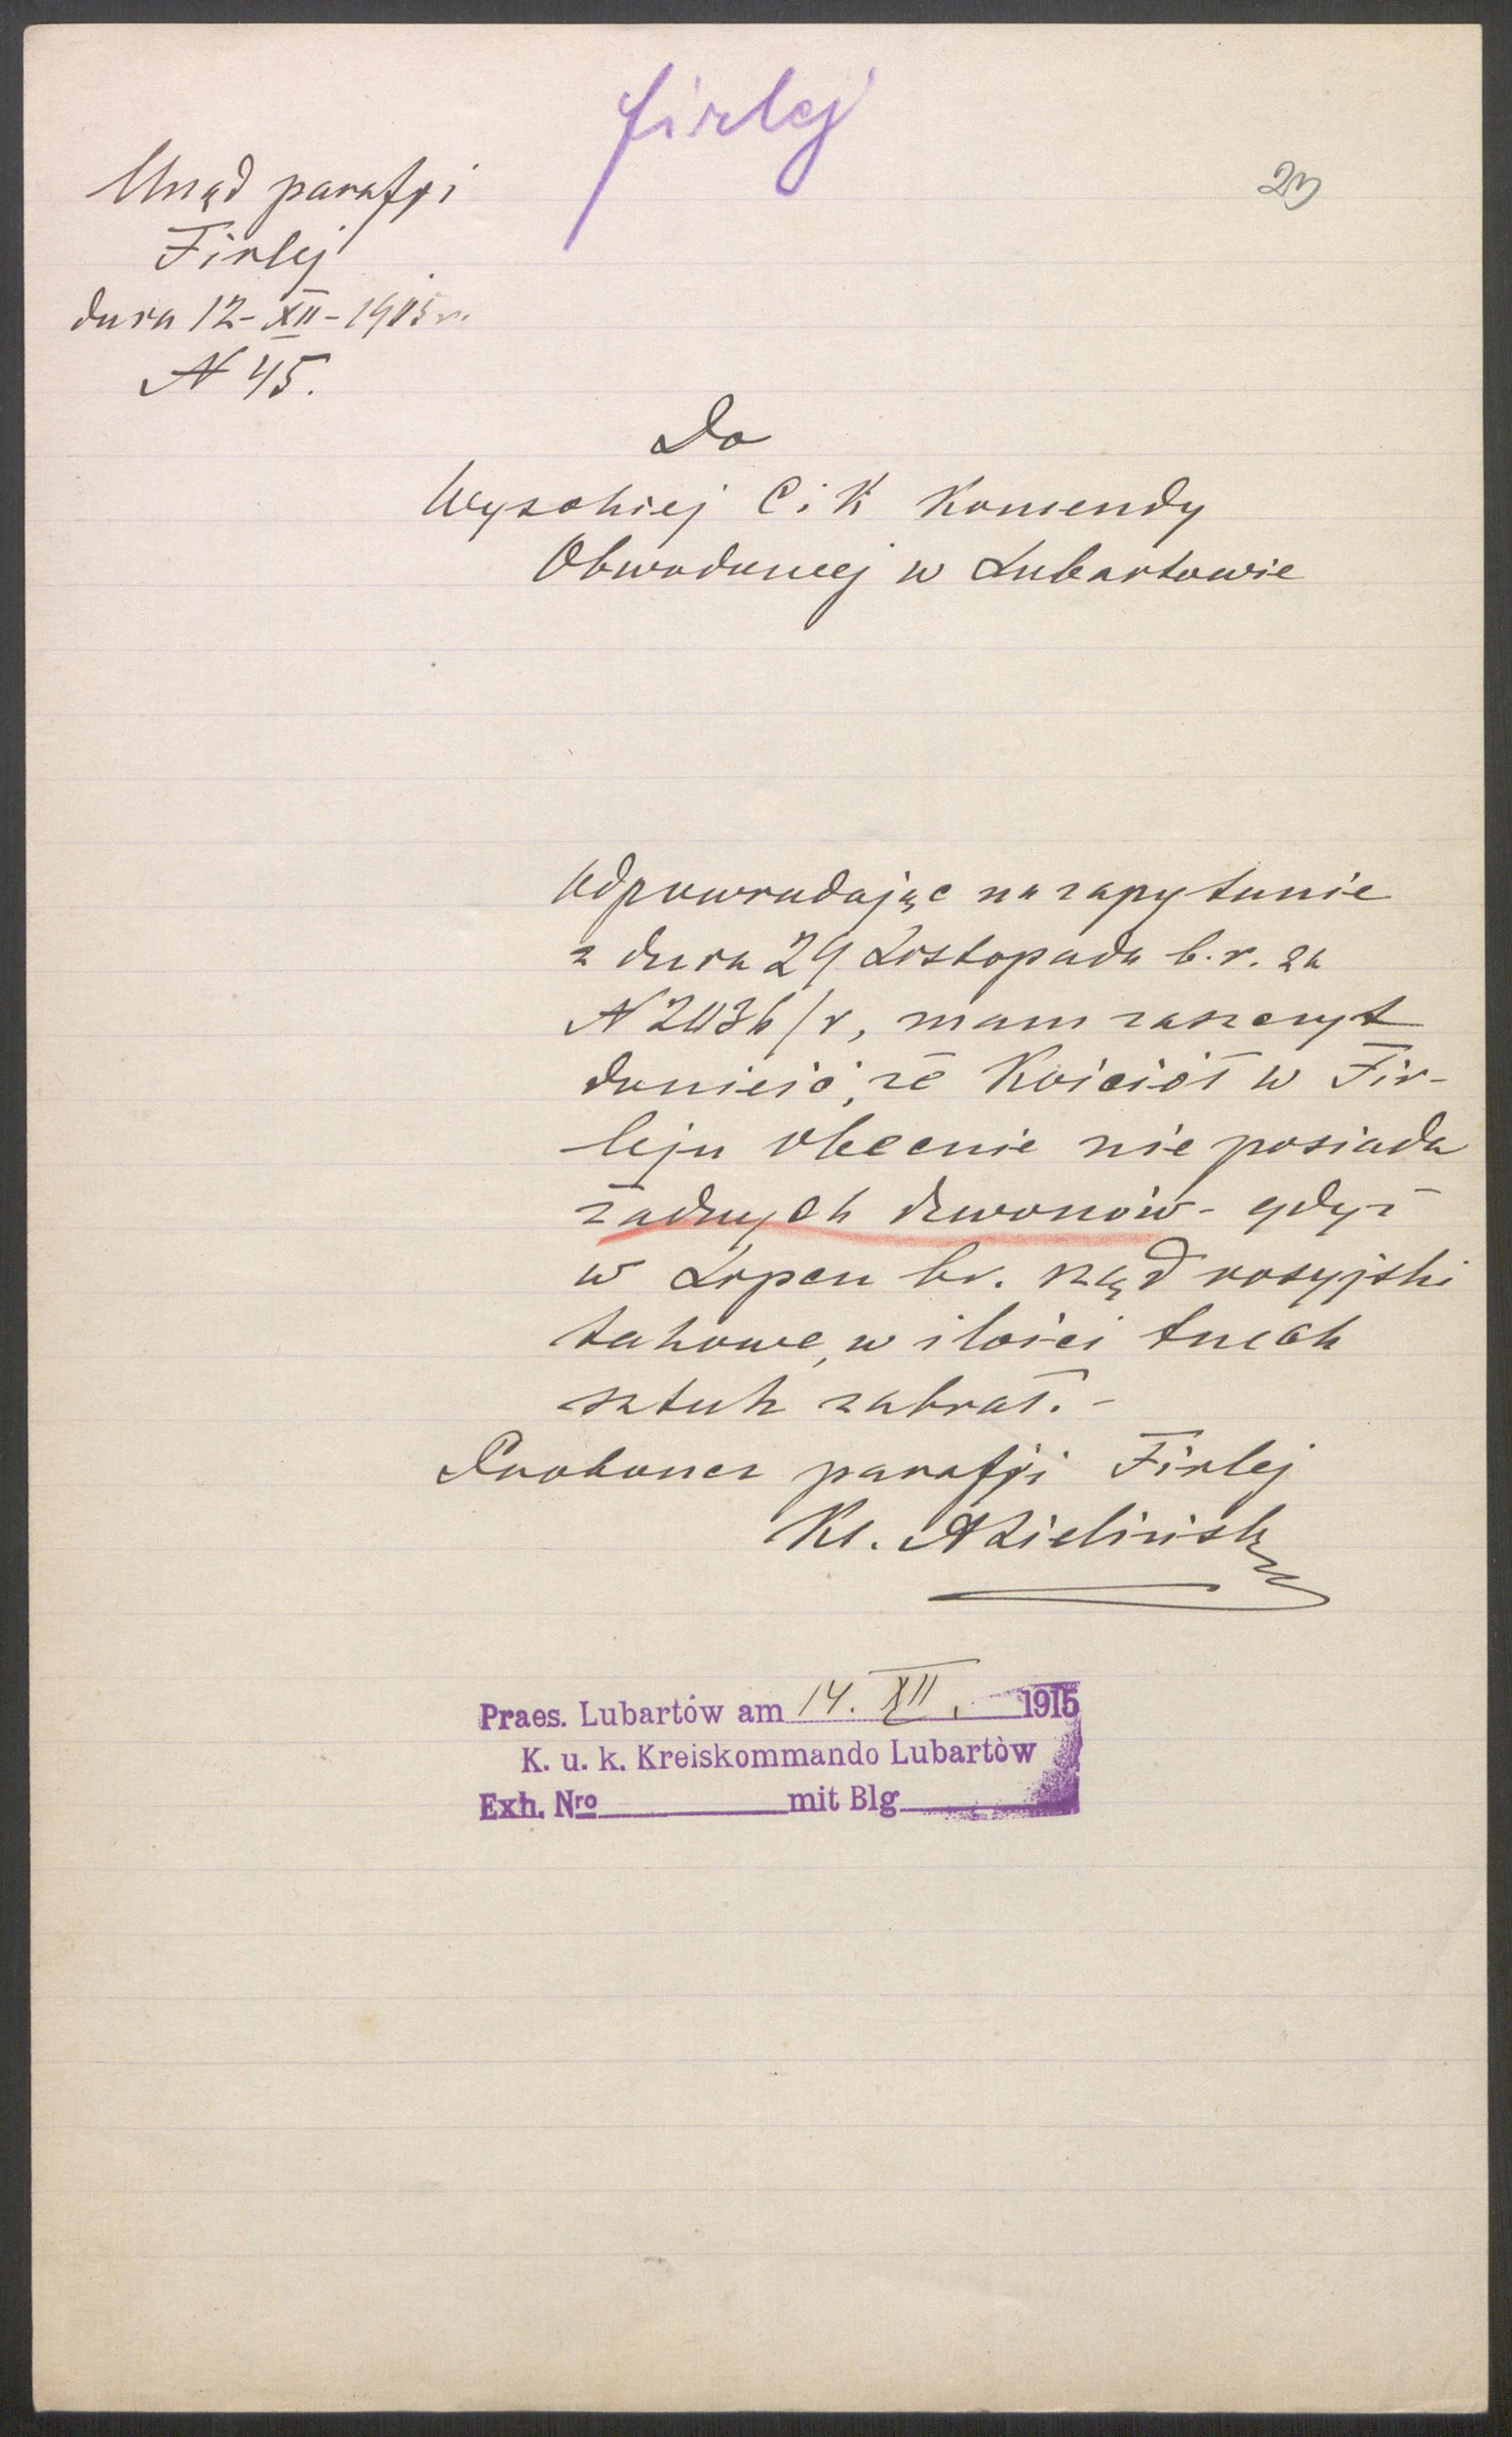 Firlej
23
Urząd parafji
Firlej
dnia 12-XII-1915 r.
N 45.
Do
Wysokiej C i K Komendy
Obwodowej w Lubartowie
Odpowiadając na zapytanie
z dnia 29 Listopada b.r. za
N 2036/r, mam zaszczyt
donieść, że Kościół w Fir-
leju obecnie nie posiada
żadnych dzwonów - gdyż
w Lipcu br. rząd rosyjski
takowe, w ilości trzech
sztuk zabrał. -
Proboszcz parafji Firlej
Ks. A Zieliński
Praes. Lubartów am 14. XII. 1915
K. u. k. Kreiskommando Lubartòw
Exh. Nro mit Blg